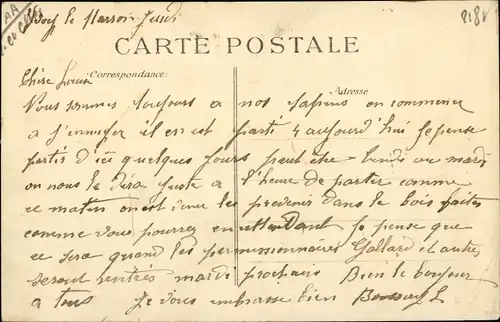 le Marson Jeudi
CARTE POSTALE
Correspondance:
Adresse
Chère
Vous sommes toujours a nos sapins on commence
a s'ennuyer il en est parti 4 aujourd'hui Je pense
partir d'ici quelques jours peut être lundi ou mardi
on nous le dira juste a l'heure de partir comme
ce matin on est venu les prévenir dans le bois faites
comme vous pourrez en attendant Je pense que
ce sera quand les permissionnaires Gallard et autres
seront rentrés mardi prochain Bien le bonjour
a tous Je vous embrasse bien